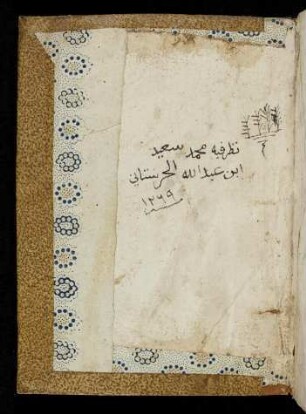 نظر فيه محمد سعيد
ابن عبد الله الحرستاني
١٢٦٩